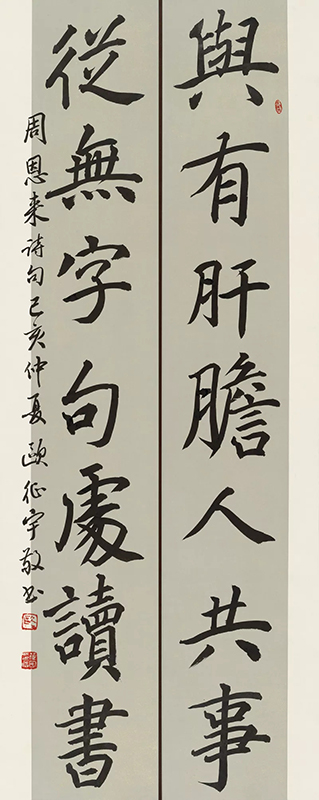 與有肝膽人共事
從無字句處讀書
周恩来诗句己亥仲夏歐征宇敬书